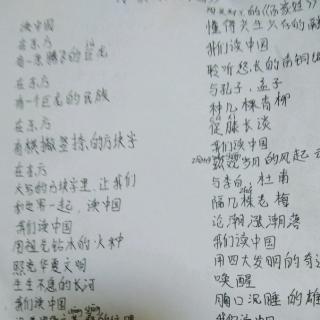 读中国
在东方
有一条腾飞的巨龙
在东方
有一个巨龙的民族
在东方
有横撇竖捺的方块字
在东方
大写的方块字里,让我们
和史军一起,读中国
我们读中国
用祖先钻冰的火种
照亮华夏文明
生生不息的长河
我们读中国
懂得共生共存的
我们读中国
聆听悠长的青铜
与孔子、孟子
种几棵青柳
促膝长谈
我们读中国
岁月的风起云
与李白、杜甫
隔几枝老梅
论潮涨潮落
我们读中国
用四大发明的奇
唤醒
胸口沉睡的雄
我们读中国